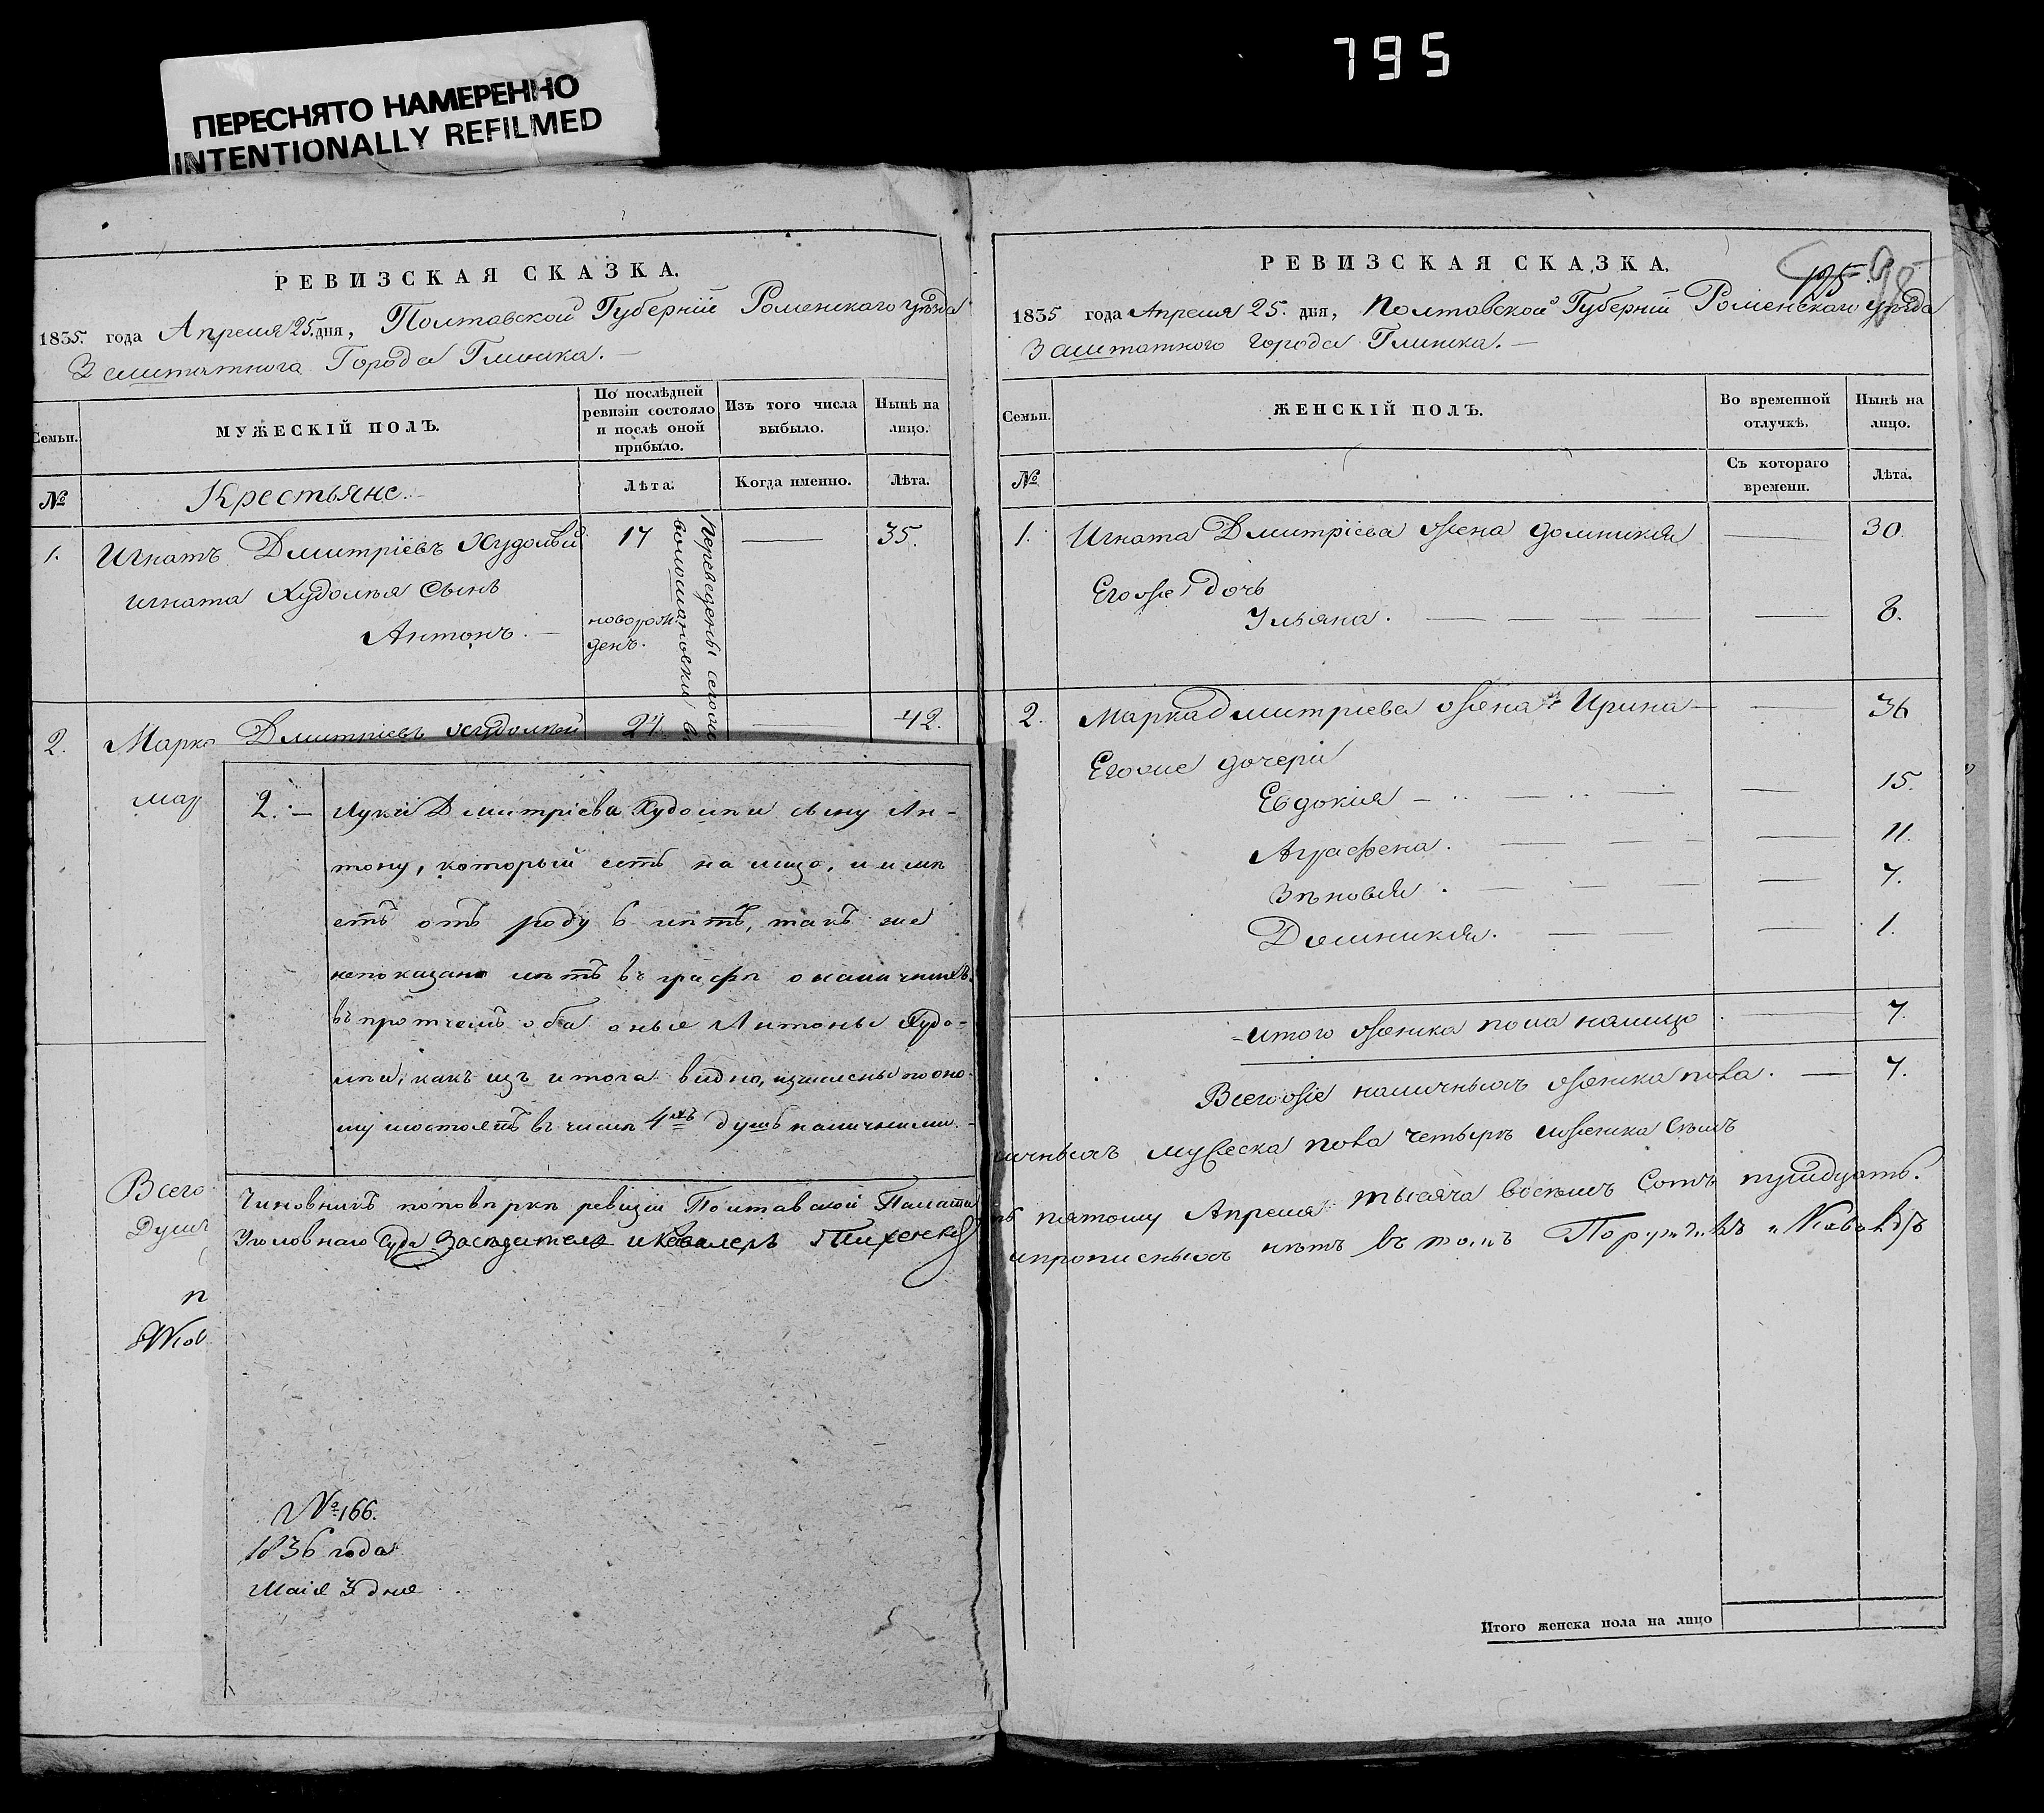 795
ПЕРЕСНЯТО НАМЕРЕННО
INTENTIONALLY REFILMED
РЕВИЗСКАЯ СКАЗКА.
1835. года Апреля 25. дня, Полтавской Губернiи Роменскаго уѣзда
Заштатнога Города Глинска.
Семьи.
МУЖЕСКІЙ ПОЛЪ.
По послѣдней ревизіи состояло и послѣ оной прибыло.
Изъ того числа выбыло.
Нынѣ на лицо.
№
Крестьяне.
Лѣта.
Когда именно.
Лѣта.
1. Игнатъ Дмитрiевъ Худолѣй 17 — 35.
Игната Худолѣя Сынъ
Антонъ. — новорож-
денъ.
Переведены
2. Марко Дмитрiевъ Худолѣй 24 — 42.
Мар
Всего
Душъ
2. — Луки Дмитрiева Худолѣи сыну Ан-
тону, который есть на лицо, и имѣ
етъ отъ роду 6 лѣтъ, такъ же
непоказано лѣтъ въ графѣ о наличныхъ.
въ протчемъ оба оные Антоны Худо-
лѣи, какъ изъ итога видно, изчислены по оно
му и состоятъ въ числѣ 4хъ душъ наличными. —
Чиновникъ поповѣркѣ ревизiи Полтавской Палаты
Уголовнаго Суда Засѣдатель и Кавалеръ
№ 166.
1836 года
Маiя 3 дня
РЕВИЗСКАЯ СКАЗКА.
195
1835 года Апреля 25. дня, Полтавской Губернiи Роменскаго уѣзда
Заштатного города Глинска. —
Семьи.
ЖЕНСКІЙ ПОЛЪ.
Во временной отлучкѣ.
Нынѣ на лицо.
№
Съ котораго времени.
Лѣта.
1. Игната Дмитрiева жена Домникiя — 30.
Егоже дочь
Ульяна. — — 8.
2. Марка Дмитрiева жена Ирина — — 36
Егоже дочери
Евдокiя — — 15.
Аграфена. — — 11.
Зѣновiя. — — 7.
Домникiя. — — 1.
Итого женска пола налицо. — 7.
Всегоже наличныхъ женска пола. — 7.
личныхъ мужеска пола четыре и женска Семъ
пятому Апреля тысяча восемь Сотъ
ипрописныхъ нѣтъ въ томъ
Итого женска пола на лицо